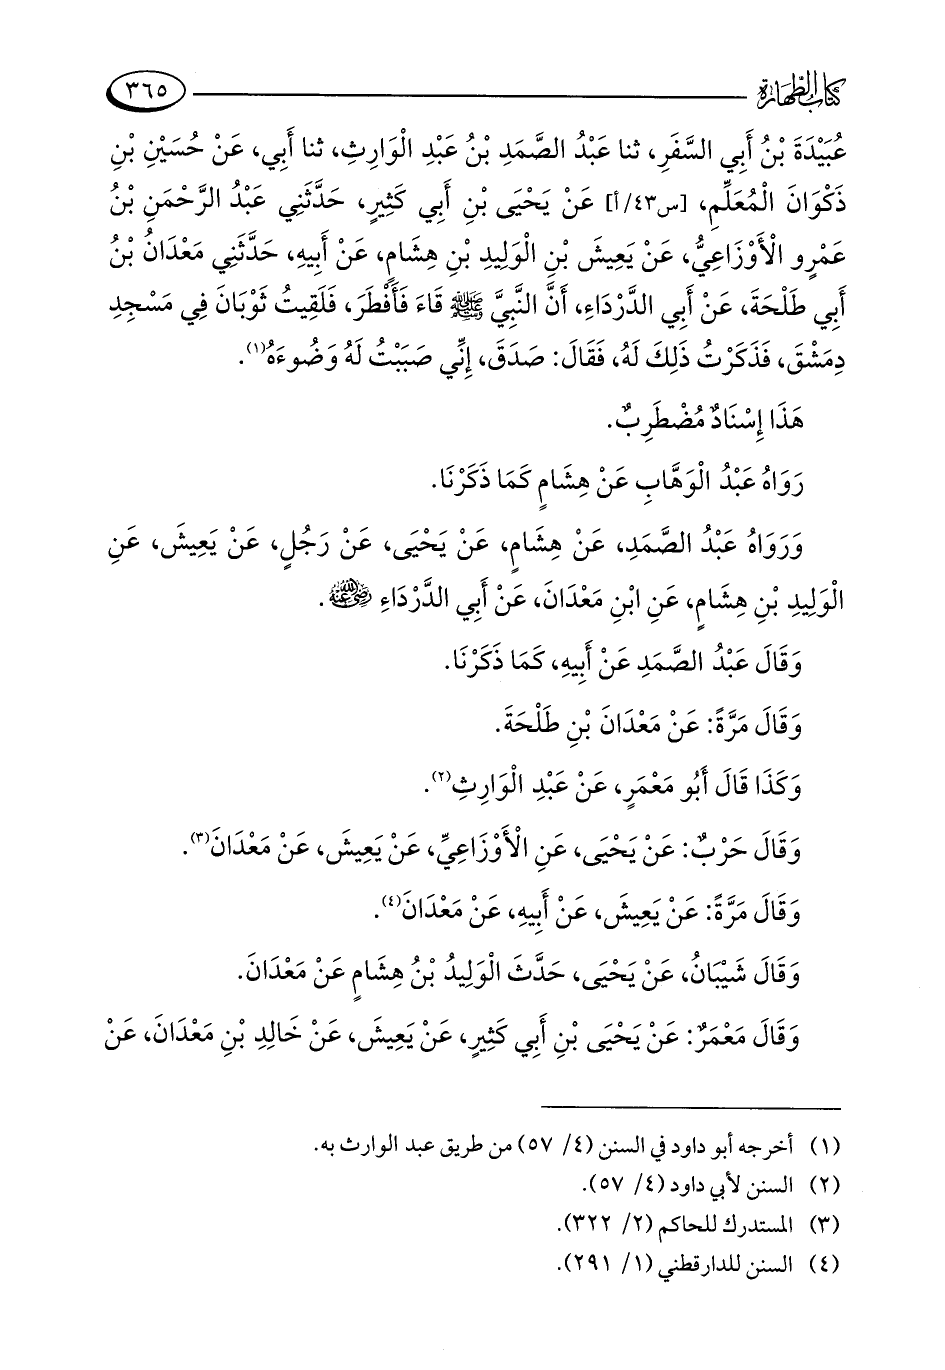 كتاب الطهارة ٣٦٥
عُبَيْدَةَ بْنُ أَبِي السَّفَرِ، ثنا عَبْدُ الصَّمَدِ بْنُ عَبْدِ الْوَارِثِ، ثنا أَبِي، عَنْ حُسَيْنِ بْنِ
ذَكْوَانَ الْمُعَلِّمِ، [س٤٣/أ] عَنْ يَحْيَى بْنِ أَبِي كَثِيرٍ، حَدَّثَنِي عَبْدُ الرَّحْمَنِ بْنُ
عَمْرٍو الْأَوْزَاعِيُّ، عَنْ يَعِيشَ بْنِ الْوَلِيدِ بْنِ هِشَامٍ، عَنْ أَبِيهِ، حَدَّثَنِي مَعْدَانُ بْنُ
أَبِي طَلْحَةَ، عَنْ أَبِي الدَّرْدَاءِ، أَنَّ النَّبِيَّ ﷺ قَاءَ فَأَفْطَرَ، فَلَقِيتُ ثَوْبَانَ فِي مَسْجِدِ
دِمَشْقَ، فَذَكَرْتُ ذَلِكَ لَهُ، فَقَالَ: صَدَقَ، إِنِّي صَبَبْتُ لَهُ وَضُوءَهُ(١).
هَذَا إِسْنَادٌ مُضْطَرِبٌ.
رَوَاهُ عَبْدُ الْوَهَّابِ عَنْ هِشَامٍ كَمَا ذَكَرْنَا.
وَرَوَاهُ عَبْدُ الصَّمَدِ، عَنْ هِشَامٍ، عَنْ يَحْيَى، عَنْ رَجُلٍ، عَنْ يَعِيشَ، عَنِ
الْوَلِيدِ بْنِ هِشَامٍ، عَنِ ابْنِ مَعْدَانَ، عَنْ أَبِي الدَّرْدَاءِ رضي الله عنه.
وَقَالَ عَبْدُ الصَّمَدِ عَنْ أَبِيهِ، كَمَا ذَكَرْنَا.
وَقَالَ مَرَّةً: عَنْ مَعْدَانَ بْنِ طَلْحَةَ.
وَكَذَا قَالَ أَبُو مَعْمَرٍ، عَنْ عَبْدِ الْوَارِثِ(٢).
وَقَالَ حَرْبٌ: عَنْ يَحْيَى، عَنِ الْأَوْزَاعِيِّ، عَنْ يَعِيشَ، عَنْ مَعْدَانَ(٣).
وَقَالَ مَرَّةً: عَنْ يَعِيشَ، عَنْ أَبِيهِ، عَنْ مَعْدَانَ(٤).
وَقَالَ شَيْبَانُ، عَنْ يَحْيَى، حَدَّثَ الْوَلِيدُ بْنُ هِشَامٍ عَنْ مَعْدَانَ.
وَقَالَ مَعْمَرٌ: عَنْ يَحْيَى بْنِ أَبِي كَثِيرٍ، عَنْ يَعِيشَ، عَنْ خَالِدِ بْنِ مَعْدَانَ، عَنْ
(١) أخرجه أبو داود في السنن (٤/ ٥٧) من طريق عبد الوارث به.
(٢) السنن لأبي داود (٤/ ٥٧).
(٣) المستدرك للحاكم (٢/ ٣٢٢).
(٤) السنن للدارقطني (١/ ٢٩١).